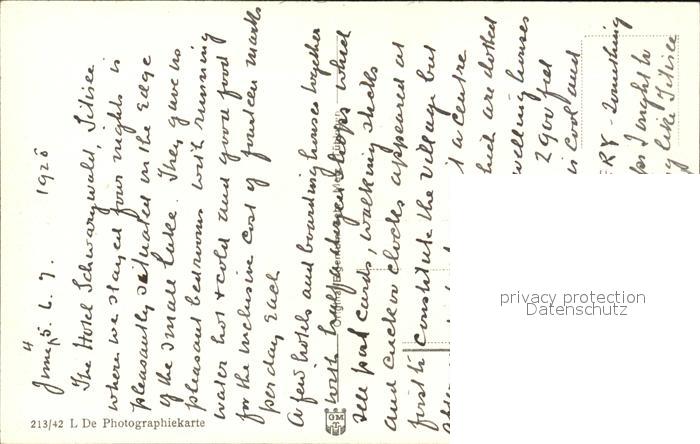 June 4, 5. 6. 7. 1928
The Hotel Schwarzwald, Titisee
where we stayed four nights is
pleasantly situated on the edge
of the small lake. They gave us
pleasant bedrooms with running
water hot + cold and good food
for the inclusive cost of fourteen marks
per day each
A few hotels and boarding houses together
with half a dozen shops which
sell post cards, walking sticks
and cuckoo clocks appeared at
first to constitute the village but
a centre
which are dotted
dwelling houses
2900 feet
is cool and
ERY - Something
I ought to
like Titisee
213/42 L De Photographiekarte
Original
GM
privacy protection
Datenschutz